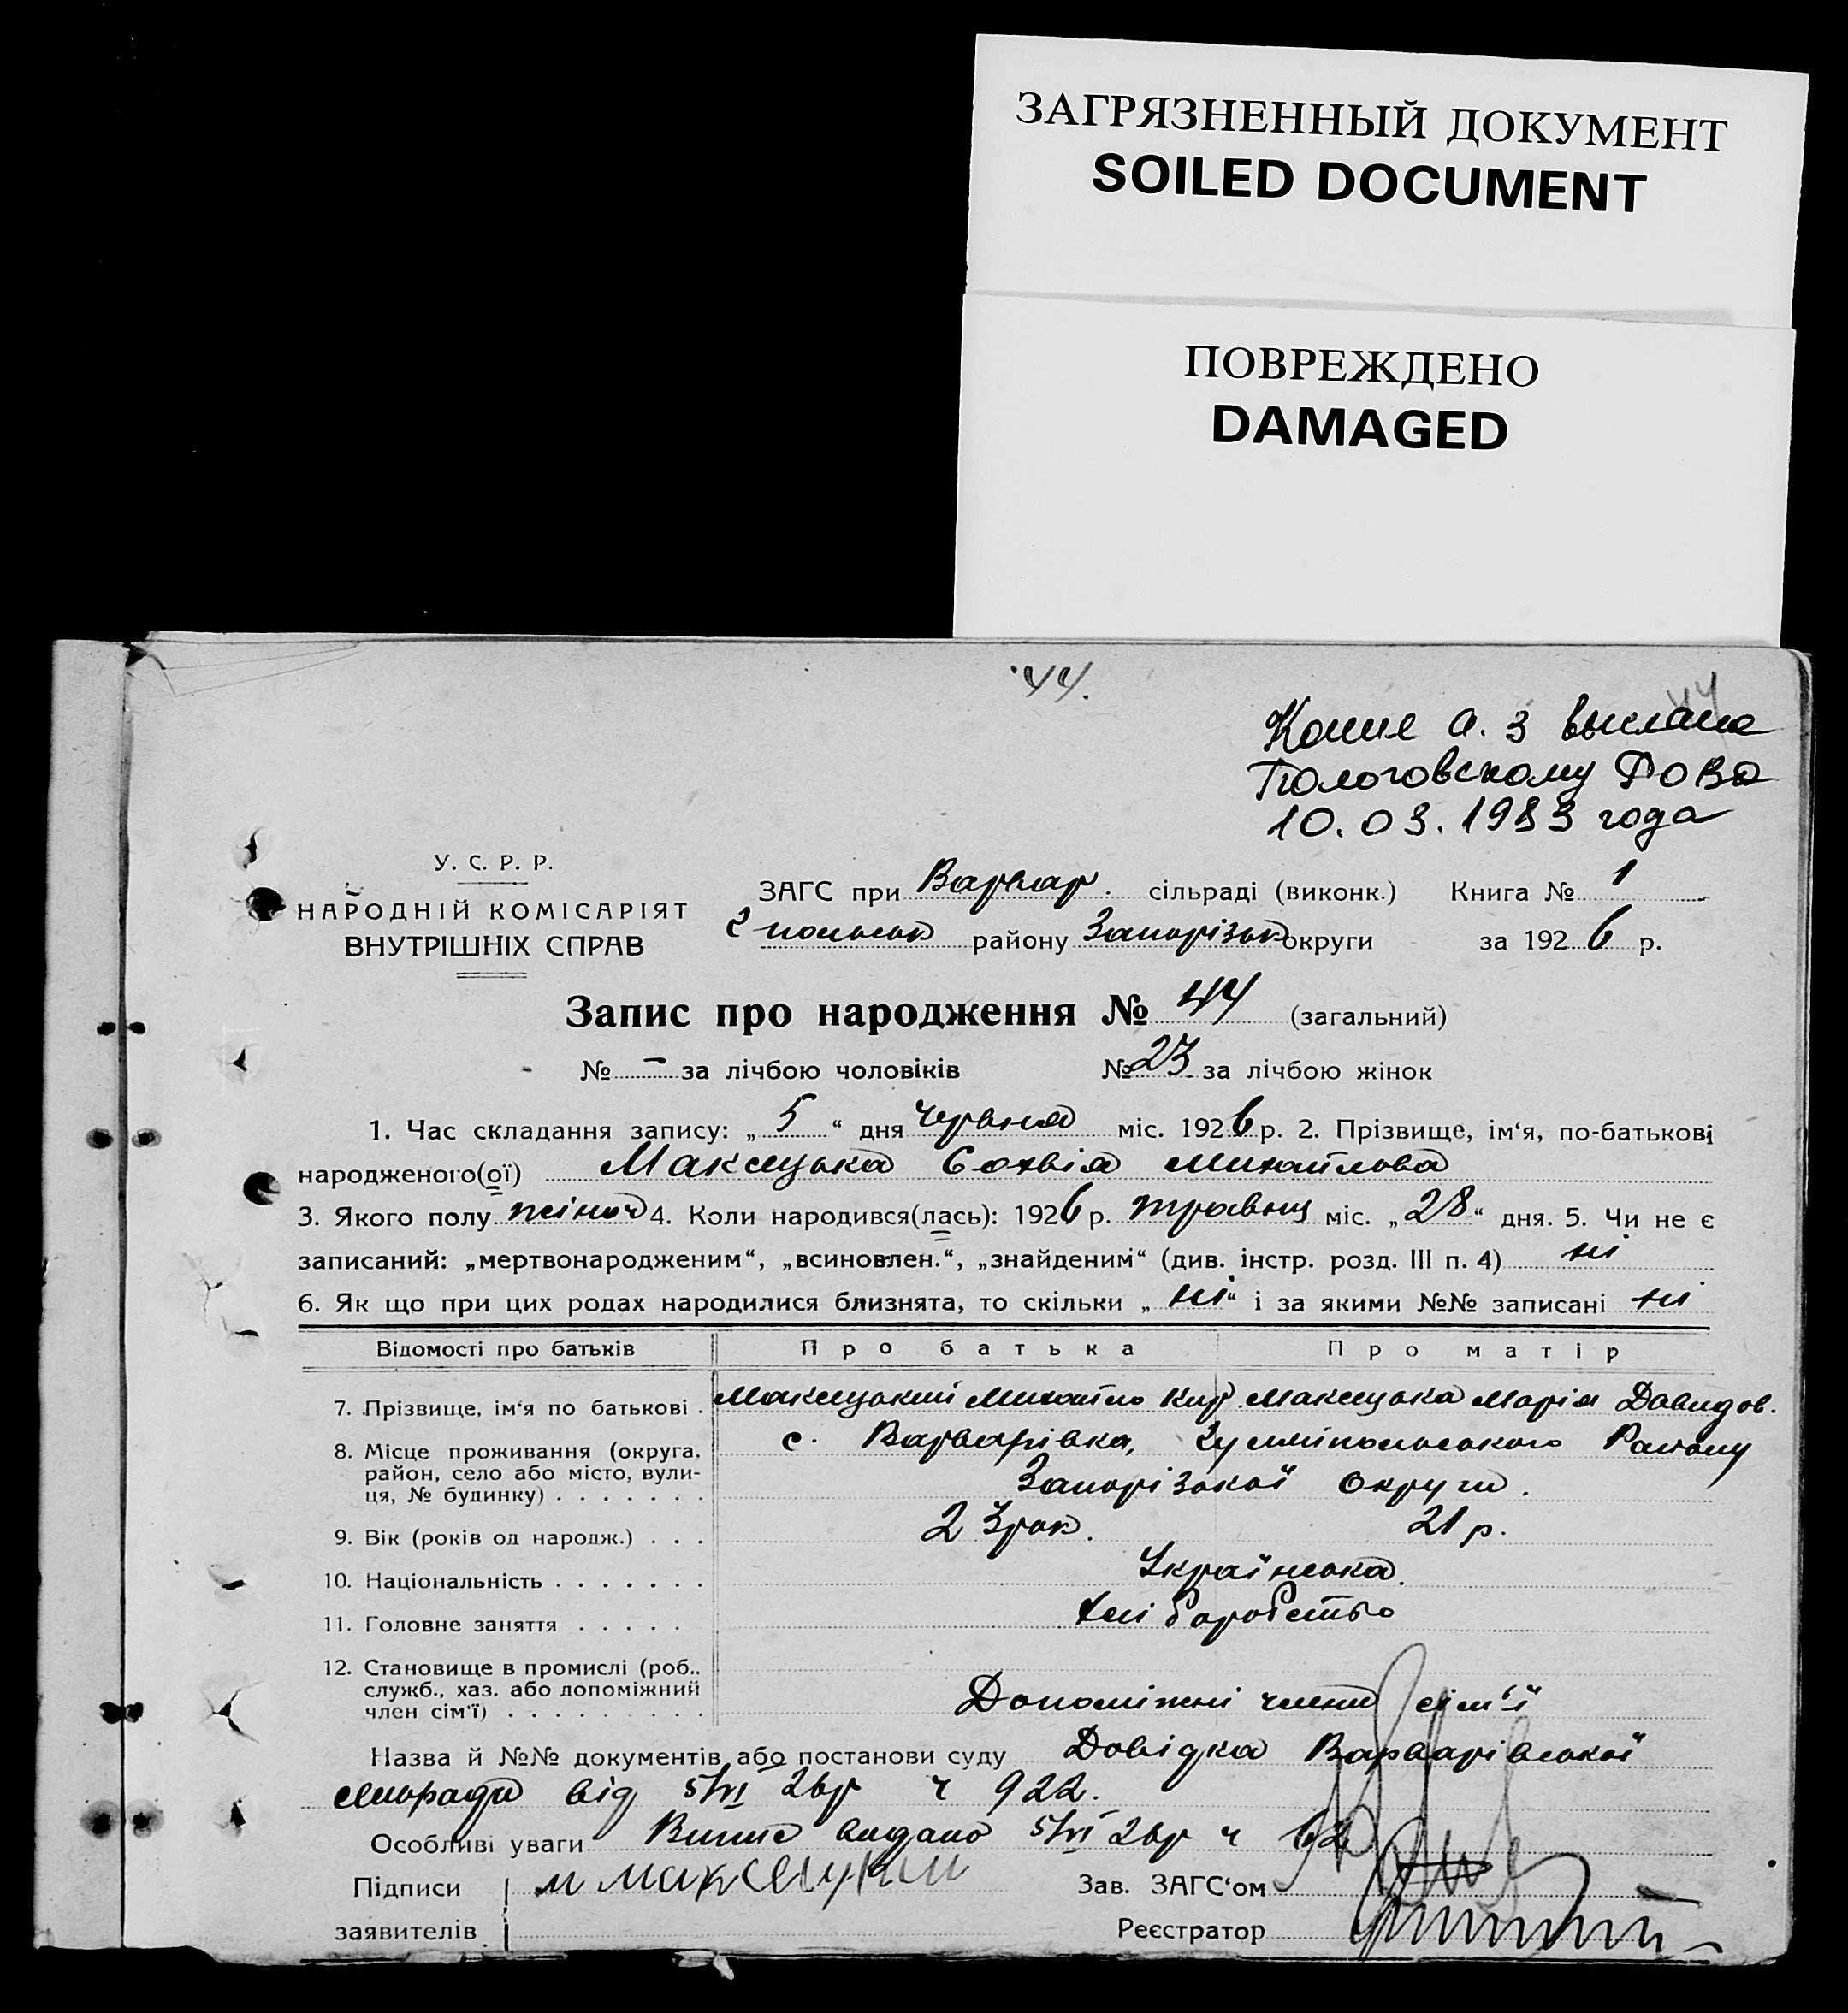 ЗАГРЯЗНЕННЫЙ ДОКУМЕНТ
SOILED DOCUMENT
ПОВРЕЖДЕНО
DAMAGED
44.
44
Копие а. з выслана
Пологовскому РОВД
10.03.1983 года
У. С. Р. Р.
НАРОДНІЙ КОМІСАРІЯТ
ВНУТРІШНІХ СПРАВ
ЗАГС при Варвар. сільраді (виконк.) Книга № 1
Г польськ району Запорізьк округи за 1926 р.
Запис про народження № 44 (загальний)
№ – за лічбою чоловіків № 23 за лічбою жінок
1. Час складання запису: „5“ дня червня міс. 1926 р. 2. Прізвище, ім‘я, по-батькові
народженого(ої) Максецька Софвія Михайлова
3. Якого полу жіноч 4. Коли народився(лась): 1926 р. травня міс. „28“ дня. 5. Чи не є
записаний: „мертвонародженим“, „всиновлен.“, „знайденим“ (див. інстр. розд. III п. 4) ні
6. Як що при цих родах народилися близнята, то скільки „ні“ і за якими №№ записані ні
Відомості про батьків Про батька Про матір
7. Прізвище, ім‘я по батькові . Максецький Михайло Кир. Максецька Марія Давидов.
8. Місце проживання (округа, с. Варварівка, Гуляйпольського Району
район, село або місто, вули- Запорізької округи.
ця, № будинку) . . . . . . .
9. Вік (років од народж.) . . . 23 рок. 21 р.
10. Національність . . . . . . . Українська.
11. Головне заняття . . . . . Хліборобство
12. Становище в промислі (роб.,
служб., хаз. або допоміжний Допоміжні члени сім‘ї
член сім‘ї) . . . . . . . . .
Назва й №№ документів або постанови суду Довідка Варварівської
сільради від 5/VI 26р ч 922.
Особливі уваги Випис видано 5/VI 26р ч 62
Підписи М Максецкий Зав. ЗАГС‘ом
заявителів Реєстратор